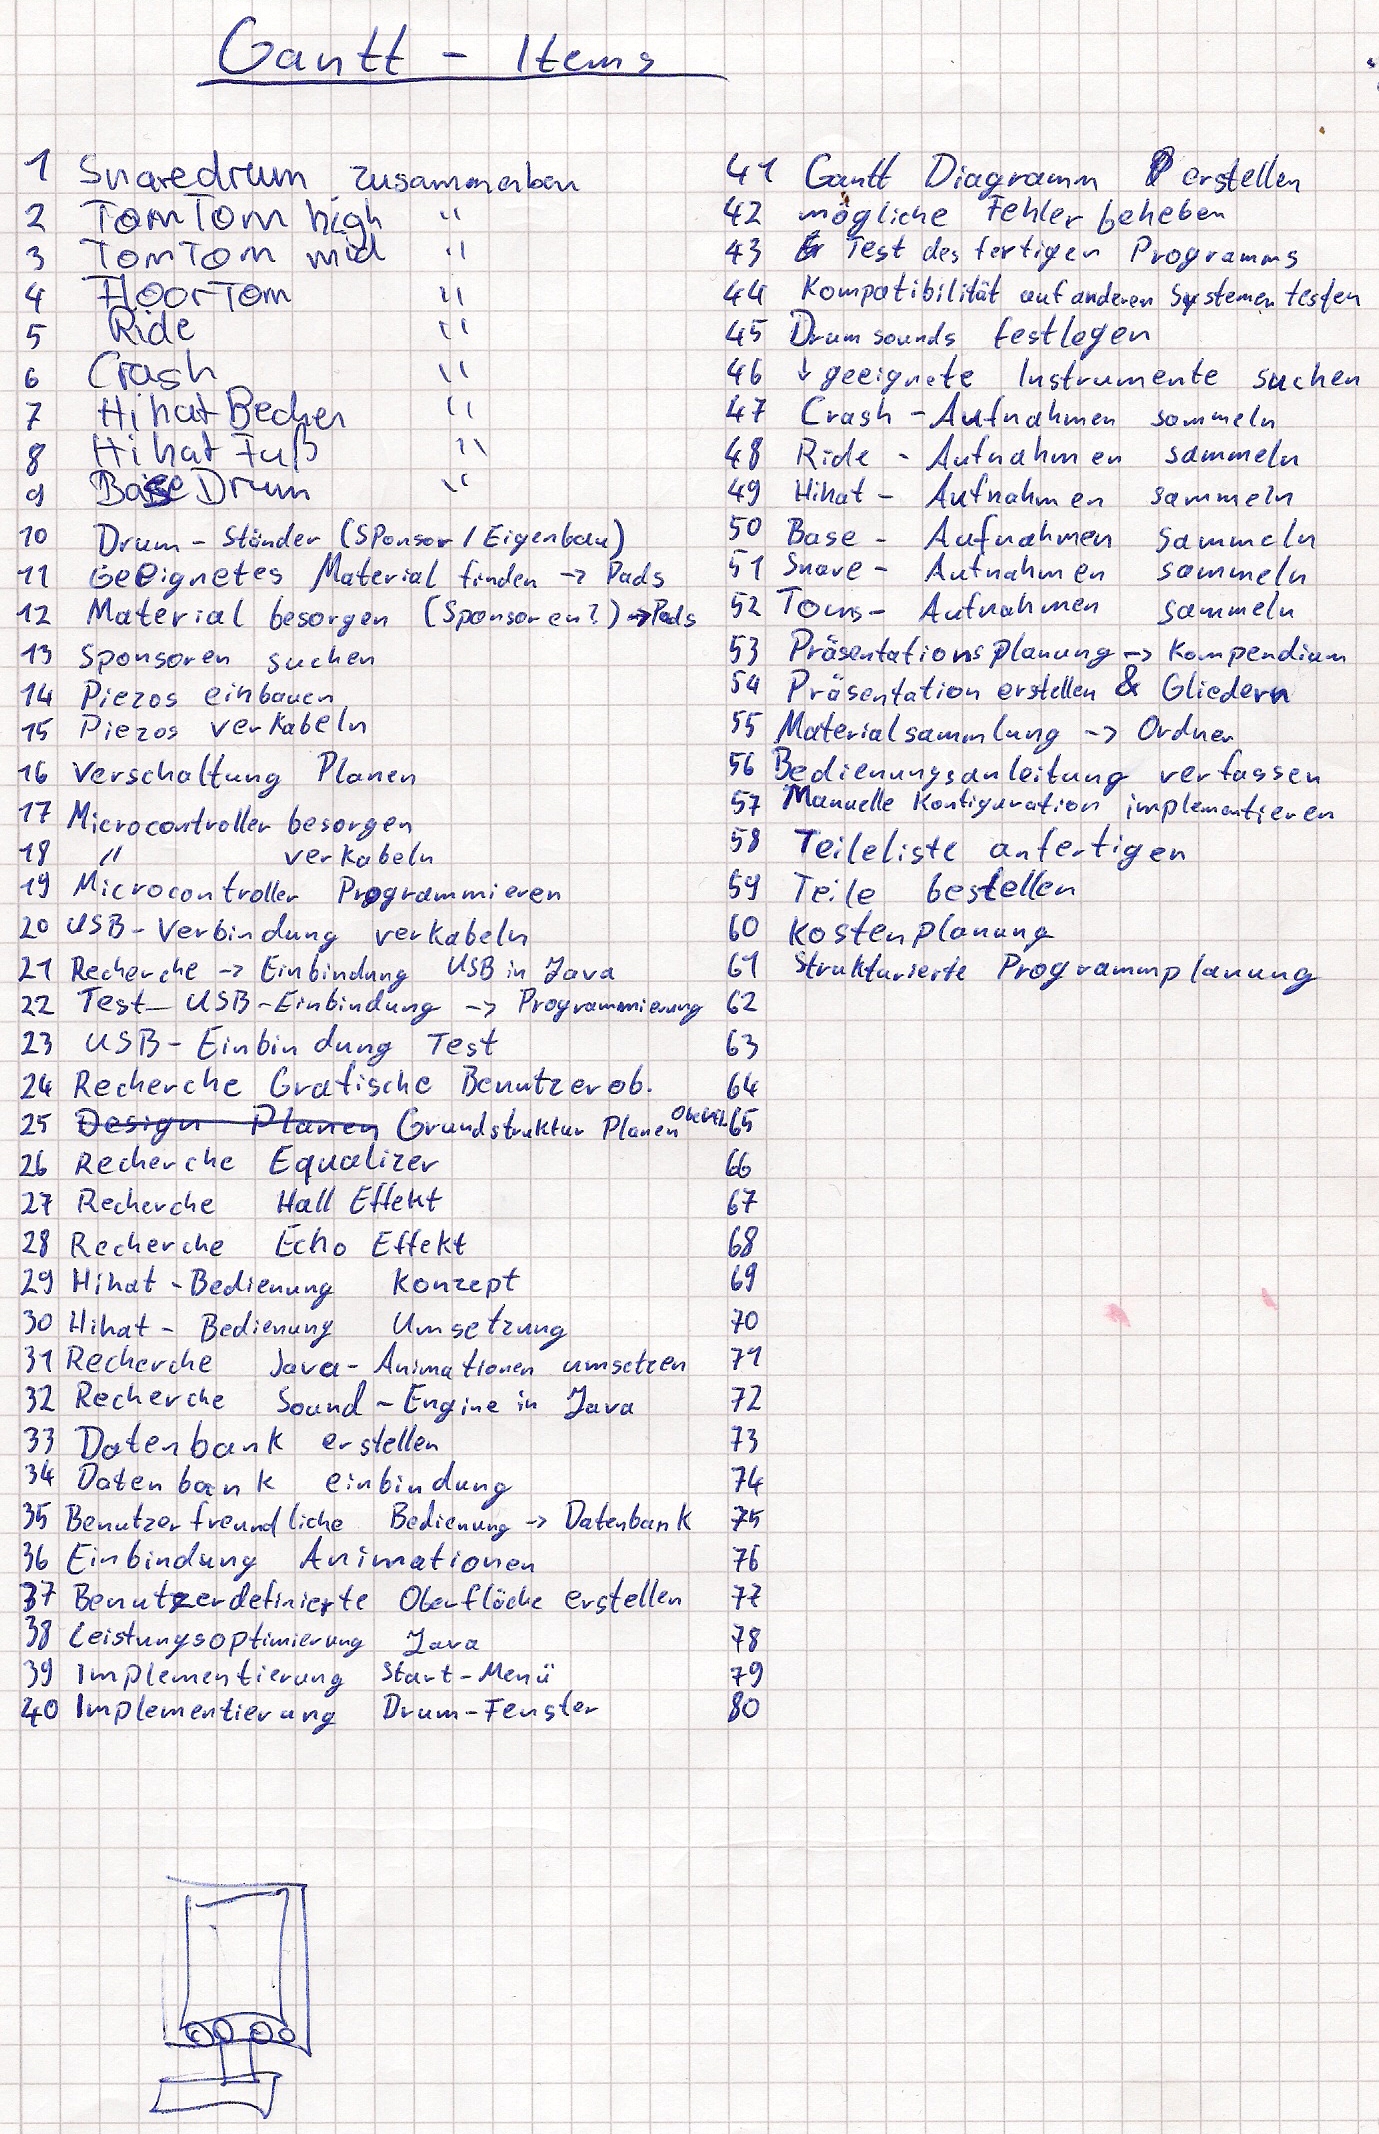 Gantt - Items
1 Snaredrum zusammenbau
2 TomTom high "
3 TomTom mid "
4 FloorTom "
5 Ride "
6 Crash "
7 Hihat Becken "
8 Hihat Fuß "
9 Base Drum "
10 Drum - Ständer (Sponsor / Eigenbau)
11 Geeignetes Material finden -> Pads
12 Material besorgen (Sponsoren?) -> Pads
13 Sponsoren suchen
14 Piezos einbauen
15 Piezos verkabeln
16 Verschaltung Planen
17 Microcontroller besorgen
18 " verkabeln
19 Microcontroller Programmieren
20 USB-Verbindung verkabeln
21 Recherche -> Einbindung USB in Java
22 Test USB-Einbindung -> Programmierung
23 USB-Einbindung Test
24 Recherche Grafische Benutzerob.
25 Design Planen Grundstruktur Planen
26 Recherche Equalizer
27 Recherche Hall Effekt
28 Recherche Echo Effekt
29 Hihat-Bedienung Konzept
30 Hihat-Bedienung Umsetzung
31 Recherche Java-Animationen umsetzen
32 Recherche Sound-Engine in Java
33 Datenbank erstellen
34 Datenbank einbindung
35 Benutzerfreundliche Bedienung -> Datenbank
36 Einbindung Animationen
37 Benutzerdefinierte Oberfläche erstellen
38 Leistungsoptimierung Java
39 Implementierung Start-Menü
40 Implementierung Drum-Fenster
41 Gantt Diagramm erstellen
42 mögliche Fehler beheben
43 Test des fertigen Programms
44 Kompatibilität auf anderen Systemen testen
45 Drumsounds festlegen
46 ↓ geeignete Instrumente suchen
47 Crash - Aufnahmen sammeln
48 Ride - Aufnahmen sammeln
49 Hihat - Aufnahmen sammeln
50 Base - Aufnahmen sammeln
51 Snare - Aufnahmen sammeln
52 Toms - Aufnahmen sammeln
53 Präsentationsplanung -> Kompendium
54 Präsentation erstellen & Gliedern
55 Materialsammlung -> Ordner
56 Bedienungsanleitung verfassen
57 Manuelle Konfiguration implementieren
58 Teileliste anfertigen
59 Teile bestellen
60 Kostenplanung
61 Strukturierte Programmplanung
62
63
64
65
66
67
68
69
70
71
72
73
74
75
76
77
78
79
80